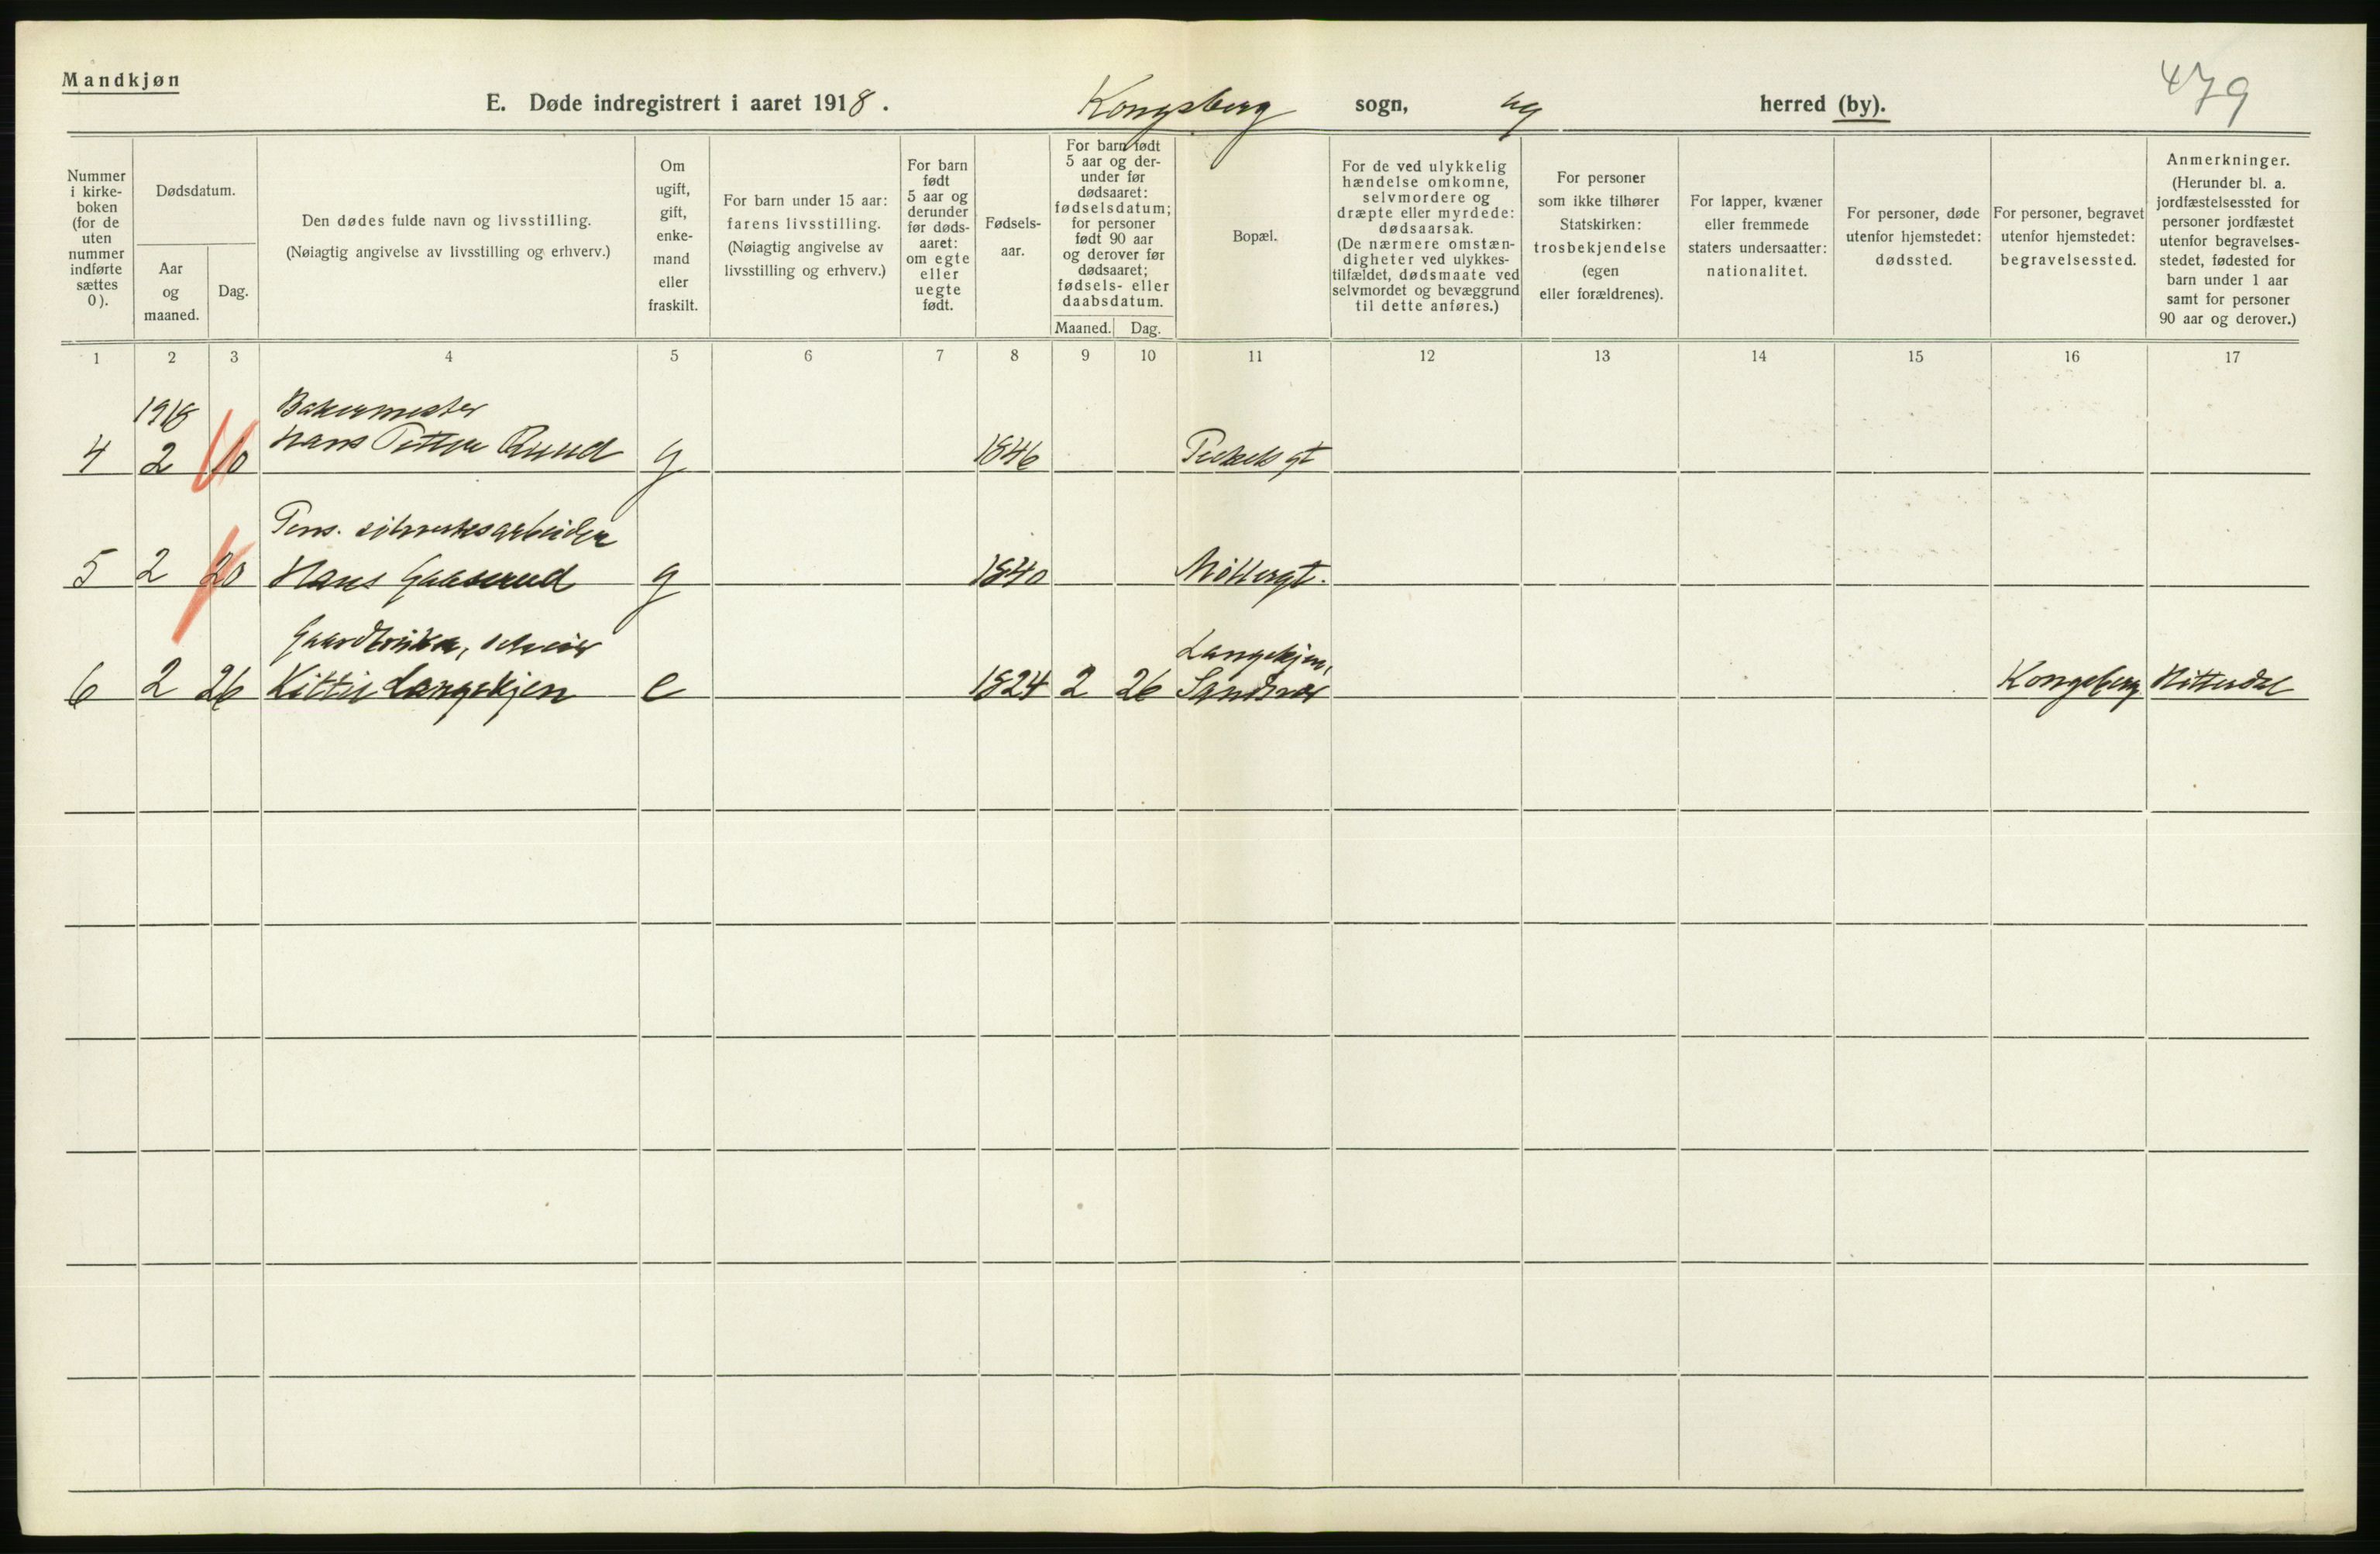 Mandkjøn
479
E. Døde indregistrert i aaret 1918. Kongsberg sogn, herred (by).
Nummer
i kirke-
boken
(for de
uten
nummer
indførte
sættes
0).
Dødsdatum.
Aar
og
maaned.
Dag.
Den dødes fulde navn og livsstilling.
(Nøiagtig angivelse av livsstilling og erhverv.)
Om
ugift,
gift,
enke-
mand
eller
fraskilt.
For barn under 15 aar:
farens livsstilling.
(Nøiagtig angivelse av
livsstilling og erhverv.)
For barn
født
5 aar og
derunder
før døds-
aaret:
om egte
eller
uegte
født.
Fødsels-
aar.
For barn født
5 aar og der-
under før
dødsaaret:
fødselsdatum;
for personer
født 90 aar
og derover før
dødsaaret;
fødsels- eller
daabsdatum.
Maaned.
Dag.
Bopæl.
For de ved ulykkelig
hændelse omkomne,
selvmordere og
dræpte eller myrdede:
dødsaarsak.
(De nærmere omstæn-
digheter ved ulykkes-
tilfældet, dødsmaate ved
selvmordet og bevæggrund
til dette anføres.)
For personer
som ikke tilhører
Statskirken:
trosbekjendelse
(egen
eller forældrenes).
For lapper, kvæner
eller fremmede
staters undersaatter:
nationalitet.
For personer, døde
utenfor hjemstedet:
dødssted.
For personer, begravet
utenfor hjemstedet:
begravelsessted.
Anmerkninger.
(Herunder bl. a.
jordfæstelsessted for
personer jordfæstet
utenfor begravelses-
stedet, fødested for
barn under 1 aar
samt for personer
90 aar og derover.)
1 2 3 4 5 6 7 8 9 10 11 12 13 14 15 16 17
1918 Bakermester
4 2 10 Hans Petter Ruud g 1846 gt
Pens. sølvverksarbeider
5 2 20 Hans Gaaserud g 1840 Møllergt.
Gaardbruker, Langekjen,
6 2 26 Kittil Langekjen e 1824 2 26 Sandsvær Kongsberg Hitterdal